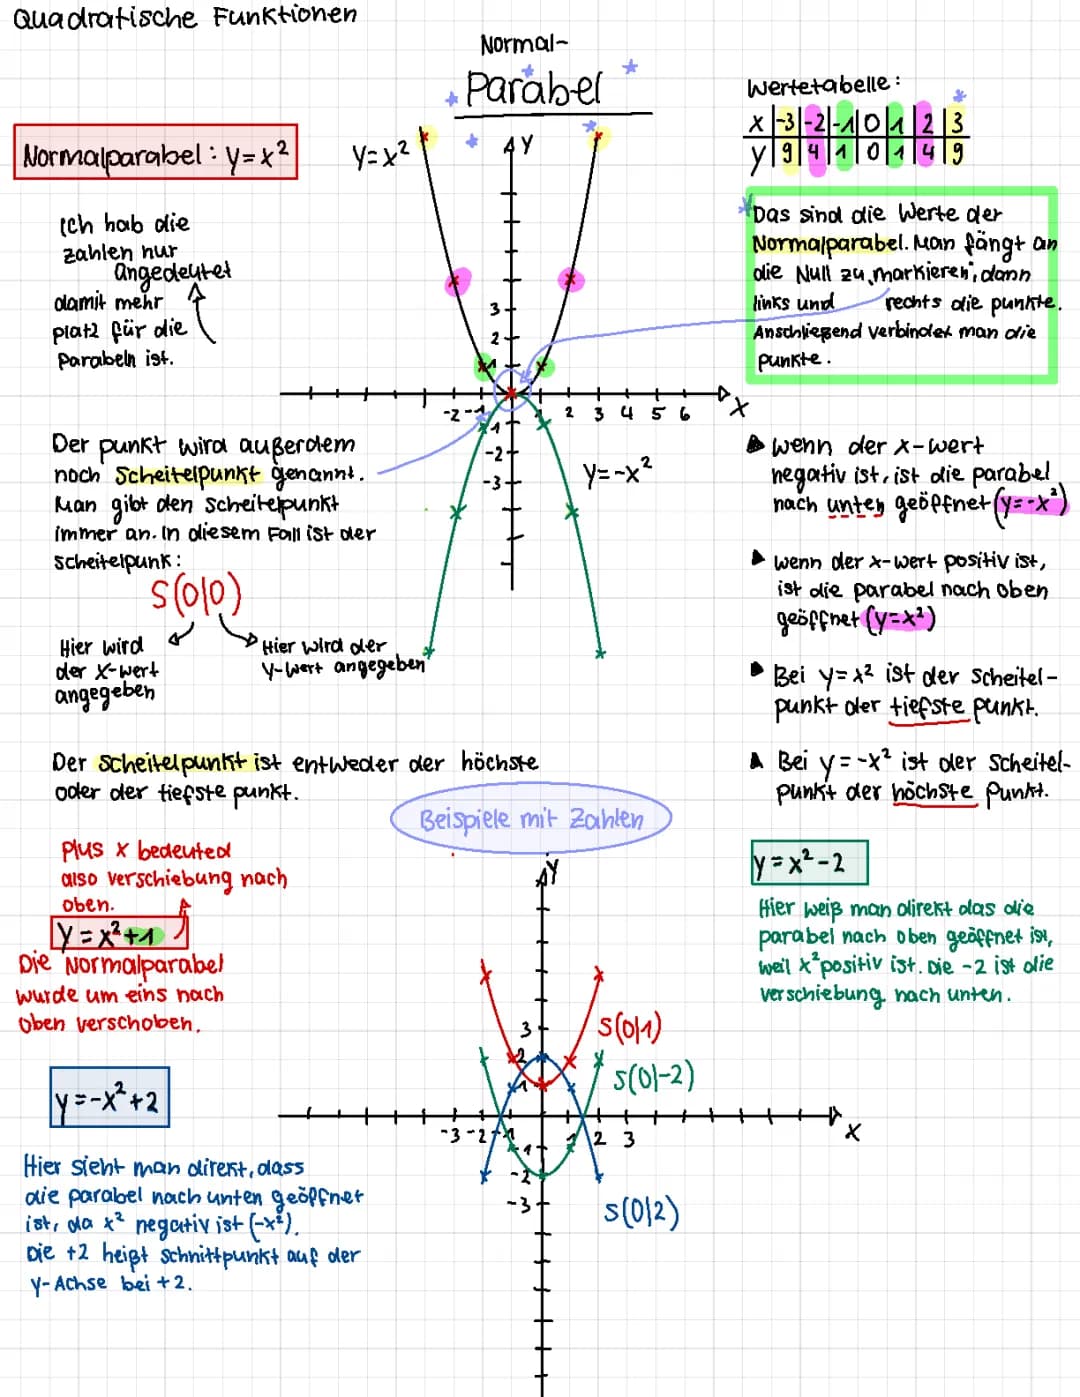 Quadratische Funktionen
Normal-
Parabel
Normalparabel: y=x²
y=x²
y
Wertetabelle:
x|-3|-2|-1|0|1|2|3
y|9|4|1|0|1|4|9
Ich hab die
zahlen nur
angedeutet
damit mehr
platz für die
Parabeln ist.
Das sind die Werte der
Normalparabel. Man fängt an
die Null zu markieren, dann
links und rechts die punkte.
Anschließend verbindet man die
punkte.
3
2
1
-2 -1 1 2 3 4 5 6 x
-1
-2
-3
y=-x²
Der punkt wird außerdem
noch Scheitelpunkt genannt.
Man gibt den Scheitelpunkt
immer an. In diesem Fall ist der
scheitelpunk:
S(0|0)
Hier wird
der X-Wert
angegeben
Hier wird der
y-Wert angegeben
wenn der x-wert
negativ ist, ist die parabel
nach unten geöffnet (y=-x²)
wenn der x-wert positiv ist,
ist die parabel nach oben
geöffnet (y=x²)
Bei y=x² ist der Scheitel-
punkt der tiefste punkt.
Bei y=-x² ist der Scheitel-
punkt der höchste Punkt.
Der scheitelpunkt ist entweder der höchste
oder der tiefste punkt.
Beispiele mit Zahlen
Plus x bedeuted
also verschiebung nach
oben.
y=x²+1
Die Normalparabel
wurde um eins nach
oben verschoben.
y=x²-2
Hier weiß man direkt das die
parabel nach oben geöffnet ist,
weil x² positiv ist. Die -2 ist die
verschiebung nach unten.
y=-x²+2
Hier sieht man direkt, dass
die parabel nach unten geöffnet
ist, da x² negativ ist (-x²).
Die +2 heißt Schnittpunkt auf der
y-Achse bei +2.
y
3
2
1
S(0|1)
S(0|-2)
-3 -2 -1 1 2 3 x
-1
-2
-3
S(0|2)